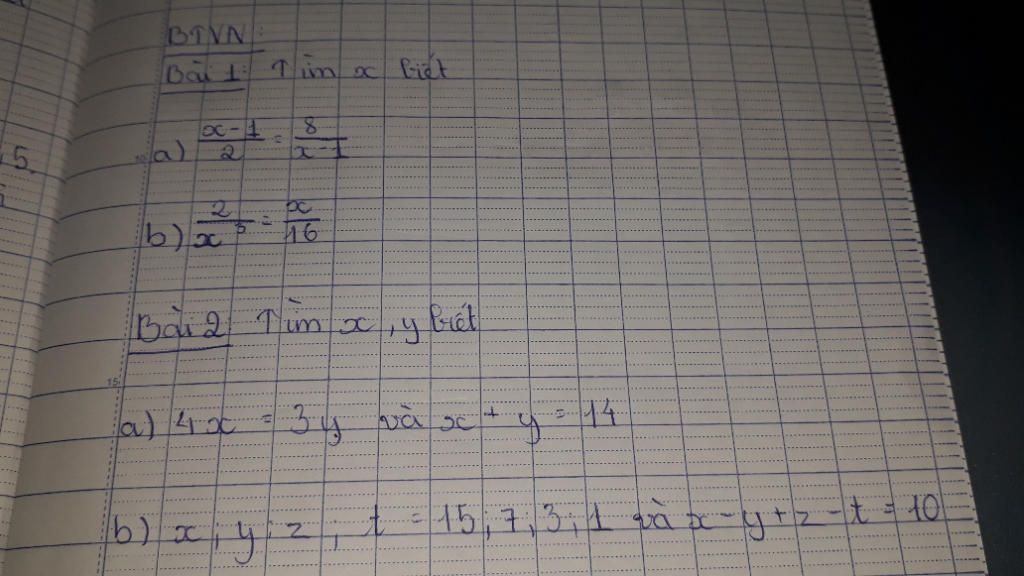 BTVN:
Bài 1: Tìm x biết
a) \frac{x-1}{2} = \frac{8}{x-1}
b) \frac{2}{x^3} = \frac{x}{16}
Bài 2 Tìm x, y biết
a) 4x = 3y và x + y = 14
b) x; y; z; t = 15; 7; 3; 1 và x - y + z - t = 10